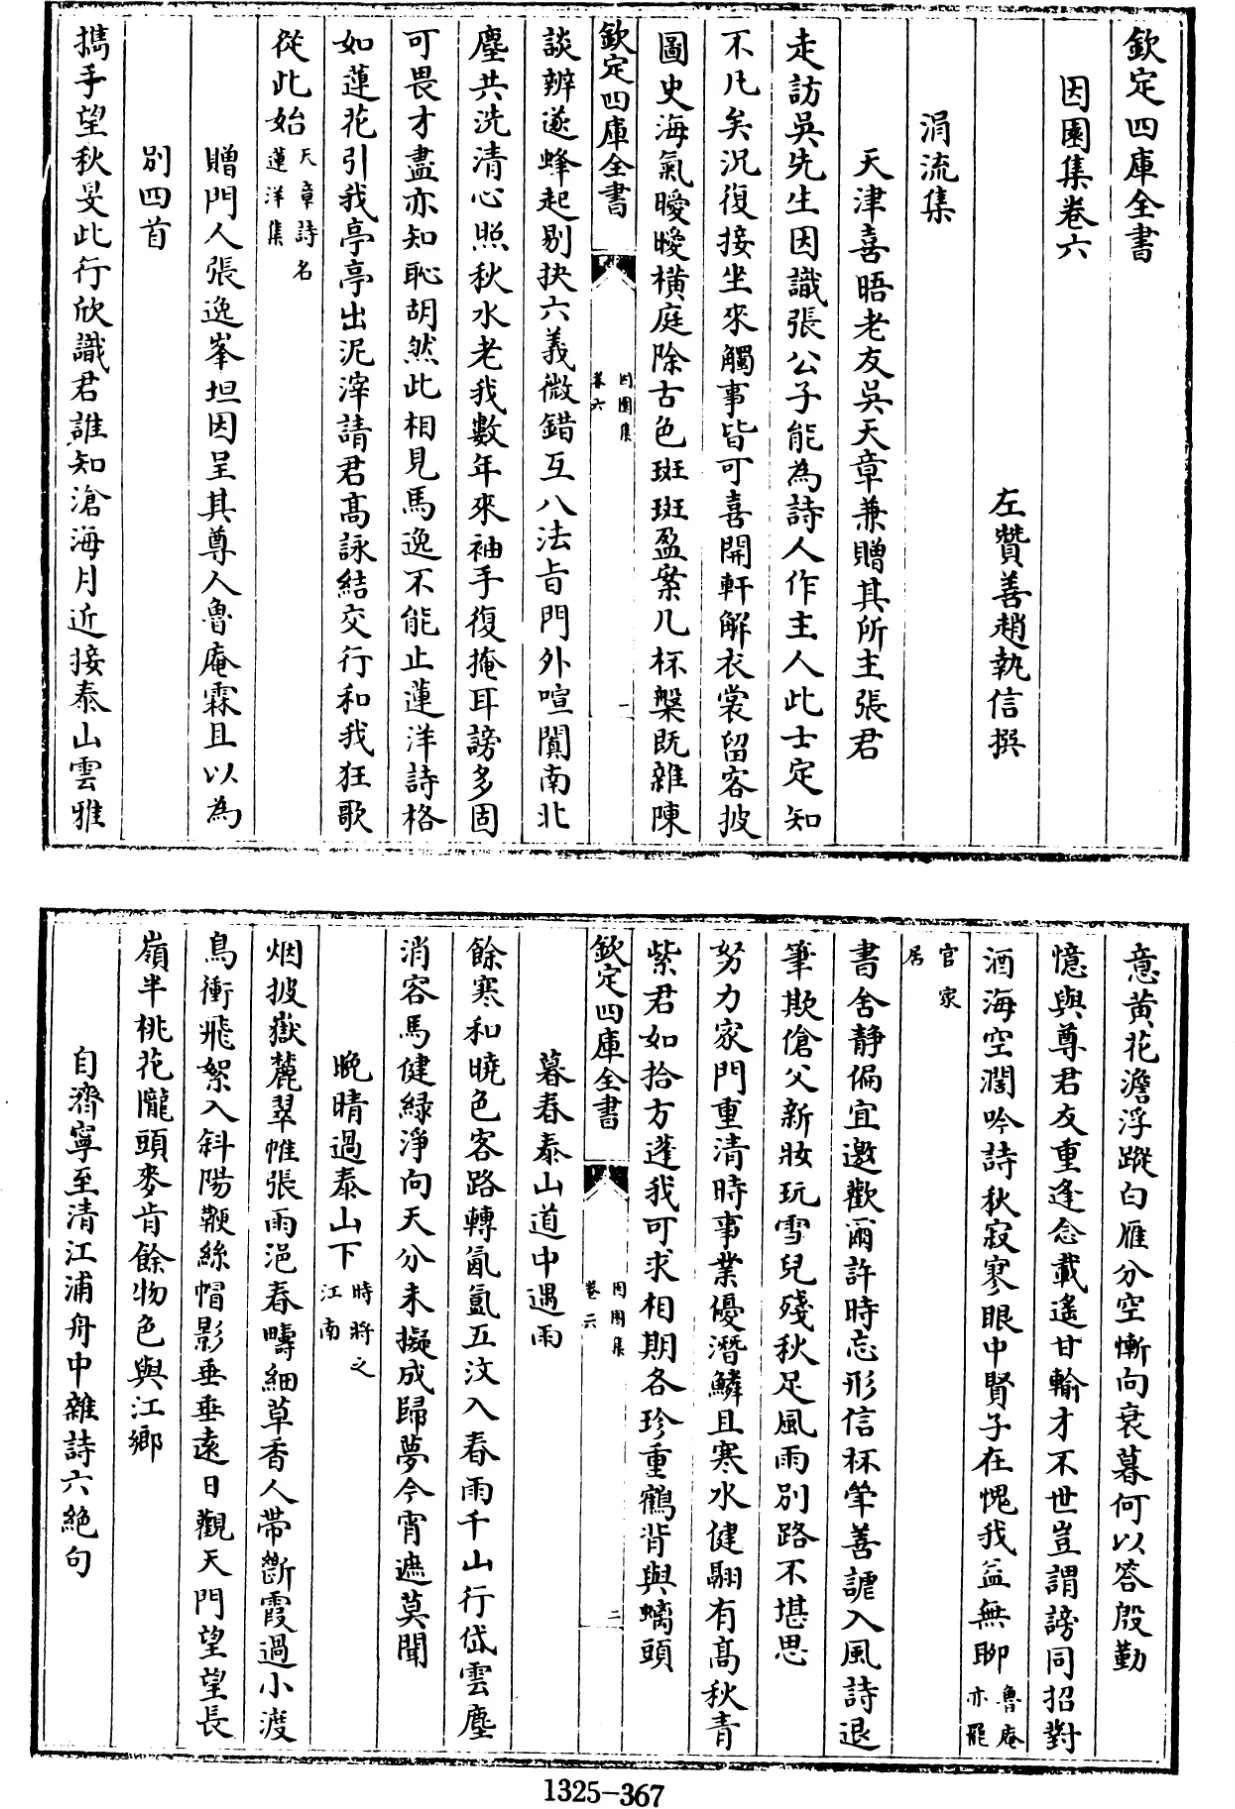 欽定四庫全書
因園集卷六
左贊善趙執信撰
涓流集
天津喜晤老友吳天章兼贈其所主張君
走訪吳先生因識張公子能為詩人作主人此士定知
不凡矣況復接坐來觸事皆可喜開軒解衣裳留客披
圖史海氣曖曖橫庭除古色斑斑盈案几杯槃既雜陳
欽定四庫全書
因園集
卷六
一
談辨遂蜂起剔抉六義微錯互八法旨門外喧闐南北
塵共洗清心照秋水老我數年來袖手復掩耳謗多固
可畏才盡亦知恥胡然此相見馬逸不能止蓮洋詩格
如蓮花引我亭亭出泥滓請君高詠結交行和我狂歌
從此始
天章詩名
蓮洋集
贈門人張逸峯坦因呈其尊人魯庵霖且以為
別四首
攜手望秋旻此行欣識君誰知滄海月近接泰山雲雅
意黃花澹浮蹤白雁分空慚向衰暮何以答殷勤
憶與尊君友重逢念載遙甘輸才不世豈謂謗同招對
酒海空濶吟詩秋寂寥眼中賢子在愧我益無聊
魯庵
亦罷
官家
居
書舍靜偏宜邀歡爾許時忘形信杯筆善謔入風詩退
筆欺傖父新妝玩雪兒殘秋足風雨別路不堪思
努力家門重清時事業優潛鱗且寒水健翮有高秋青
紫君如拾方蓬我可求相期各珍重鶴背與螭頭
欽定四庫全書
因園集
卷六
二
暮春泰山道中遇雨
餘寒和曉色客路轉氤氳五汶入春雨千山行岱雲塵
消容馬健綠淨向天分未擬成歸夢今宵遮莫聞
晚晴過泰山下
時將之
江南
烟披嶽麓翠帷張雨浥春疇細草香人帶斷霞過小渡
鳥衝飛絮入斜陽鞭絲帽影垂垂遠日觀天門望望長
嶺半桃花隴頭麥肯餘物色與江鄉
自濟寧至清江浦舟中雜詩六絕句
1325-367